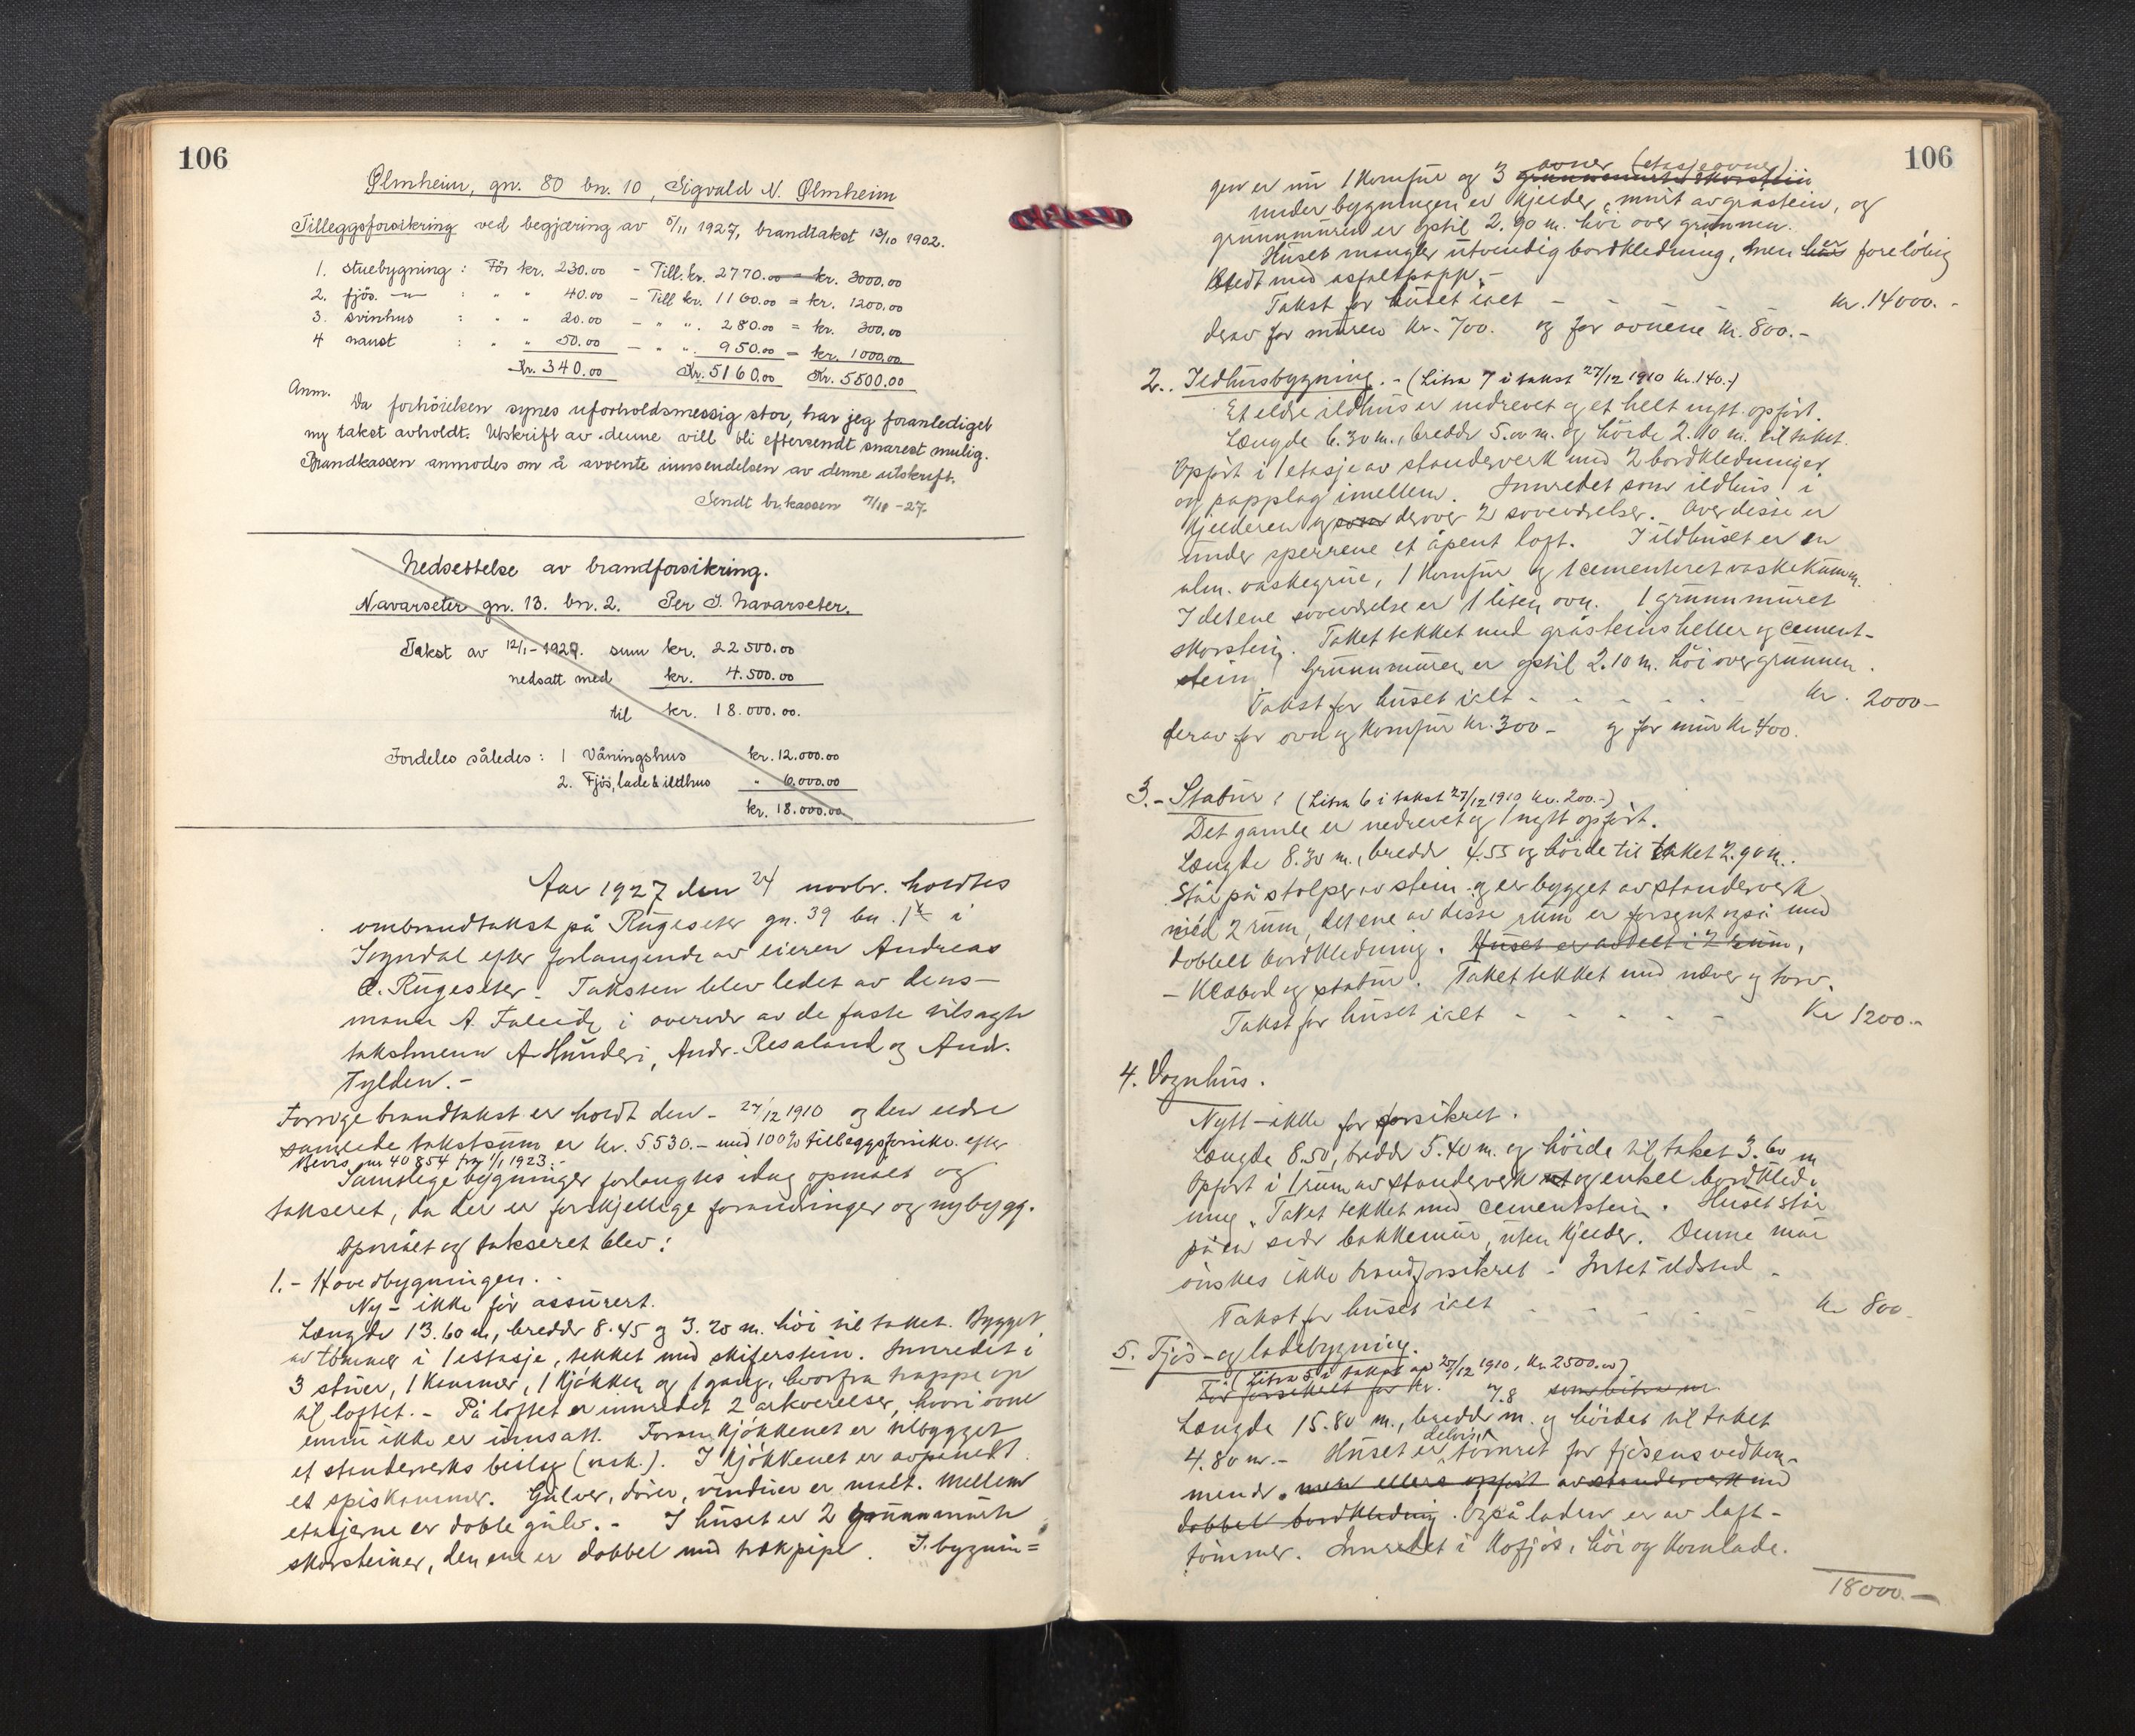 106
Ølmheim, gn. 80 bn. 10, Sigvald N. Ølmheim
Tilleggsforsikring ved begjæring av 5/11 1927, brandtakst 13/10 1902.
1. stuebygning : Før kr. 230.00 - Till. kr. 2770.00 = kr. 3000.00
2. fjös. —"— : " " 40.00 - Till kr. 1160.00 = kr. 1200.00
3. svinhus : " " 20.00 - " ". 280.00 = kr. 300.00
4 naust : " " 50.00 - " ". 950.00 = kr. 1000.00
Kr. 340.00 Kr. 5160.00 Kr. 5500.00
Anm. Da forhöielsen synes uforholdsmessig stor, har jeg foranlediget
ny takst avholdt. Utskrift av denne vill bli eftersendt snarest mulig.
Brandkassen anmodes om å avvente innsendelsen av denne utskrift.
Sendt br.kassen -27.
Nedsettelse av brandforsikring.
Navarseter gn. 13. bn. 2. Per J. Navarseter.
Takst av 12/1-1927. sum kr. 22500.00
nedsatt med kr. 4.500.00
til kr. 18.000.00.
Fordeles således : 1 Våningshus kr. 12.000.00
2. Fjös, lade & ildhus " 6.000.00
kr. 18.000.00
Aar 1927 den 24 novbr. holdtes
ombrandtakst på Rugeseter gn. 39 bn. 1 i
Sogndal efter forlangende av eieren Andreas
Rugeseter. Taksten blev ledet av lens-
mann A. Faleide i overvær av de faste tilsagte
takstmenn A Hunderi, Andr. Resaland og Andr.
Tylden.-
Forrige brandtakst er holdt den - 27/12 1910 og den eldre
samlede takstsum er kr. 5530.- med 100% tilleggsforsikr. efter
Bevis nr 40854 fra 1/1 1923.-
Samtlige bygninger forlanges idag opmålt og
taksert, da der er forskjellige forandringer og nybygg.
Opmålt og taksert blev:
1.- Hovedbygningen.
Ny - ikke før assurert.
Længde 13.60 m, bredde 8.45 og 3.20 m. höi til taket. Bygget
av tömmer i 1 etasje, tekket med skiferstein. Innredet i
3 stuer, 1 kammer, 1 kjökken og 1 gang, hvorfra trappe op
til loftet.- På loftet er innredet 2 arkverelser, hvori ovne
ennu ikke er innsatt. Foran kjökkenet er tilbygget
et stenderverks beslag (ark.). I kjökkenet er avpanelt
et spiskammer. Gulver, dörer, vinduer er malt. Mellem
etasjerne er doble gulv.- I huset er 2 grunnmurte
skorsteiner, den ene er dobbel med trekpipe. I bygnin=
106
gen er nu 1 komfur og 3 ovner (etasjeovner)
under bygningen er kjelder, murt av gråstein, og
grunnmuren er optil 2.90 m. höi over grunnen.
Huset mangler utvendig bordkledning, men er foreløbig
kledt med asfaltpapp.-
Takst for huset ialt - - - - - kr. 14000.-
derav for muren kr. 700. og for ovnene kr. 800.-
2. Ildhusbygning.- (Litra 7 i takst 27/12 1910 kr. 140.-)
Et eldre ildhus er nedrevet og et helt nytt opfört.
Længde 6.30 m., bredde 5.00 m. og höide 2.10 m. til taket.
Opfört i 1 etasje av standerverk med 2 bordkledninger
og papplag imellem. Innredet som ildhus i
kjelderen og som derover 2 soveværelser. Over disse er
under sperrene et åpent loft. I ildhuset er en
alm. vaskegrue, 1 komfur og 1 cementeret vaskekumm.
I det ene soveværelse er 1 liten ovn. 1 grunnmuret
skorstein. Taket tekket med gråsteinsheller og cement-
stein. Grunnmuren er optil 2.10 m. höi over grunnen.
Takst for huset ialt - - - - - kr. 2000-
derav for ovn og komfur kr. 300 - og for mur kr 400.
3.- Stabur : (Litra 6 i takst 27/12 1910 kr. 200.-)
Det gamle er nedrevet og 1 nytt opfört.
Længde 8.30 m., bredde 4.55 og höide til taket 2.90 m.
Står på stolper av stein og er bygget av standerverk
med 2 rum, det ene av disse rum er forsynt også med
dobbelt bordkledning. Huset er avdelt i 2 rum,
- klæbod og stabur. Taket tekket med næver og torv.
Takst for huset ialt - - - - - Kr 1200.-
4. Vognhus.
Nytt - ikke för forsikret.
Længde 8.50, bredde 5.40 m. og höide til taket 3.60 m
Opfört i 1 rum av standerverk og enkel bordkled-
ning. Taket tekket med cementstein. Huset står
på en side bakkemur, uten kjelder. Denne mur
önskes ikke brandforsikret - Intet ildsted -
Takst for huset ialt - - - - - kr 800-
5. Fjös- og ladebygning.
(Litra 5 i takst av 27/12 1910, kr. 2500.00)
Før forsikret for kr. 7.8 som litra nr.
Længde 15.80 m., bredde m. og höide til taket
4.80 m.- Huset er delvis tömret for fjösens vedkom-
mende. men ellers opfört av standerverk med
dobbel bordkledning. Også laden er av laft-
tömmer. Innredet i kofjös, höi og kornlade.
18000.-